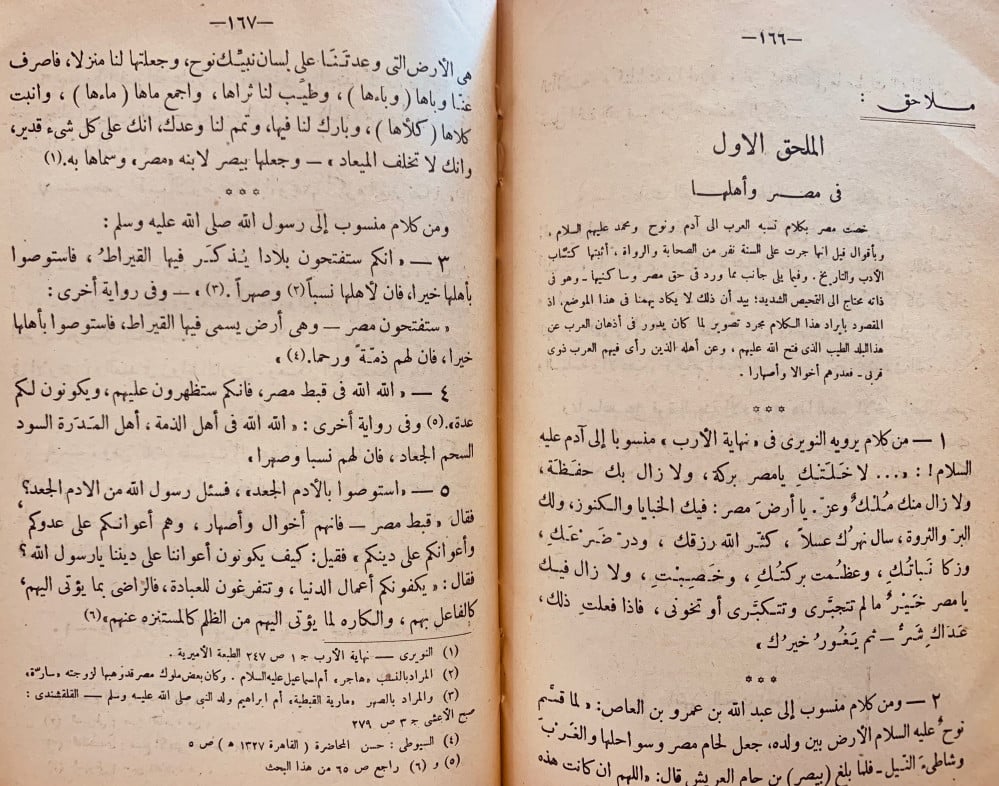 —١٦٦—
ملاحق :
الملحق الاول
فى مصر وأهلها
خصت مصر بكلام نسبه العرب الى آدم ونوح ومحمد عليهم السلام ،
وبأقوال قيل انها جرت على السنة نفر من الصحابة والرواة ، أثبتها كتّاب
الأدب والتاريخ . وفيما يلى جانب مما ورد فى حق مصر وساكنيها ـ وهو فى
ذاته محتاج الى التمحيص الشديد؛ بيد أن ذلك لا يكاد يهمنا فى هذا الموضع، اذ
المقصود بإيراد هذا الكلام مجرد تصوير لما كان يدور فى أذهان العرب عن
هذا البلد الطيب الذى فتح الله عليهم ، وعن أهله الذين رأى فيهم العرب ذوى
قربى ـ فعدوهم أخوالا وأصهارا .
* * *
١ — من كلام يرويه النويرى فى « نهاية الأرب » منسوبا إلى آدم عليه
السلام! : «... لا خَلَتكِ يا مصر بركة ، ولا زال بك حفَظَة ،
ولا زال منك مُلكٌ وعز . يا أرضَ مصر : فيك الخبايا والكنوز، ولك
البر والثروة ، سال نهرُك عسلاً ، كثّر الله رزقك ، ودرّ ضَرعك ،
وزكا نَباتُك ، وعظُمت بركتُك ، وخَصِبتِ ، ولا زال فيك
يا مصر خَيْرٌ ما لم تتجبَّرى وتتكبَّرى أو تخونى ، فاذا فعلت ذلك ،
عَدَاكِ شَرٌّ — ثم يَغُورُ خيرُك »
* * *
٢ — ومن كلام منسوب إلى عبد الله بن عمرو بن العاص: « لما قسّم
نوحٌ عليه السلام الأرض بين ولده، جعل لحام مصر وسواحلها والغَربَ
وشاطىءَ النيل ـ فلما بلغ (بيصر) بن حام العريش قال: «اللهم ان كانت هذه
—١٦٧—
هى الأرض التى وعدتَنَا على لسان نبيك نوح، وجعلتها لنا منزلا، فاصرف
عنّا وباها ( وباءها ) ، وطيّب لنا ثراها ، واجمع ماها ( ماءها ) ، وانبت
كلاها ( كلأها ) ، وبارك لنا فيها، وتمم لنا وعدك، انك على كل شىء قدير،
وانك لا تخلف الميعاد » — وجعلها بيصر لابنه «مصر» وسماها به.(١)
* * *
ومن كلام منسوب إلى رسول الله صلى الله عليه وسلم :
٣ — « انكم ستفتحون بلادا يُذكَر فيها القيراطُ ، فاستوصوا
بأهلها خيرا، فان لأهلها نسباً(٢) وصهراً .(٣) » — وفى رواية أخرى :
« ستفتحون مصر — وهى أرض يسمى فيها القيراط، فاستوصوا بأهلها
خيرا ، فان لهم ذمّةً ورحما.(٤) »
٤ — « الله الله فى قبط مصر، فانكم ستظهرون عليهم، ويكونون لكم
عدة».(٥) وفى رواية أخرى : « الله الله فى أهل الذمة ، أهل المَدَرة السود
السحم الجعاد ، فان لهم نسبا وصهرا»
٥ — «استوصوا بالأدم الجعد» ، فسئل رسول الله من الادم الجعد؟
فقال « قبط مصر — فانهم أخوال وأصهار ، وهم أعوانكم على عدوكم
وأعوانكم على دينكم » فقيل: كيف يكونون أعواننا على ديننا يا رسول الله ؟
فقال : « يكفونكم أعمال الدنيا ، وتتفرغون للعبادة، فالراضى بما يؤتى اليهم
كالفاعل بهم ، والكاره لما يؤتى اليهم من الظلم كالمتنزه عنهم»(٦)
(١) النويرى — نهاية الأرب ج ١ ص ٢٤٧ الطبعة الأميرية .
(٢) المراد بالنسب «هاجر» أم اسماعيل عليه السلام . وكان بعض ملوك مصر قد وهبها لزوجته «سارّة»
(٣) والمراد بالصهر «مارية القبطية» أم ابراهيم ولد النبى صلى الله عليه وسلم — القلقشندى :
صبح الأعشى ج ٣ ص ٢٧٩
(٤) السيوطى : حسن المحاضرة ( القاهرة ١٣٢٧ هـ ) ص ٥
(٥) و (٦) راجع ص ٦٥ من هذا البحث